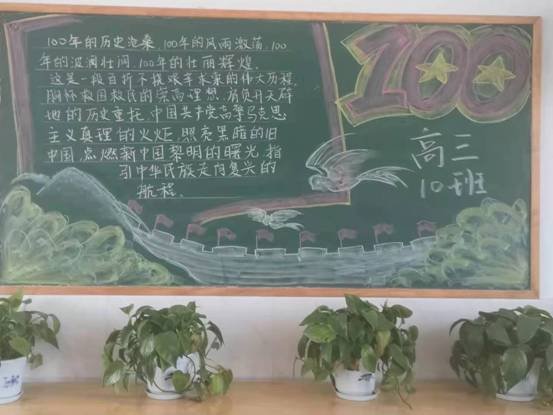 100年的历史沧桑,100年的风雨激荡,100
年的波澜壮阔,100年的壮丽辉煌.
这是一段百折不挠艰辛求索的伟大历程.
胸怀救国救民的崇高理想,肩负开天辟
地的历史重托,中国共产党高擎马克思
主义真理的火炬,照亮黑暗的旧
中国,点燃新中国黎明的曙光,指
引中华民族走向复兴的
航程.
100
高三
10班